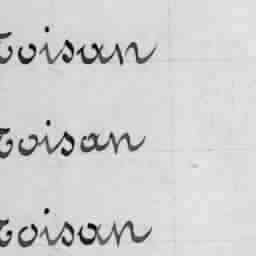 Toisan
Toisan
Toisan